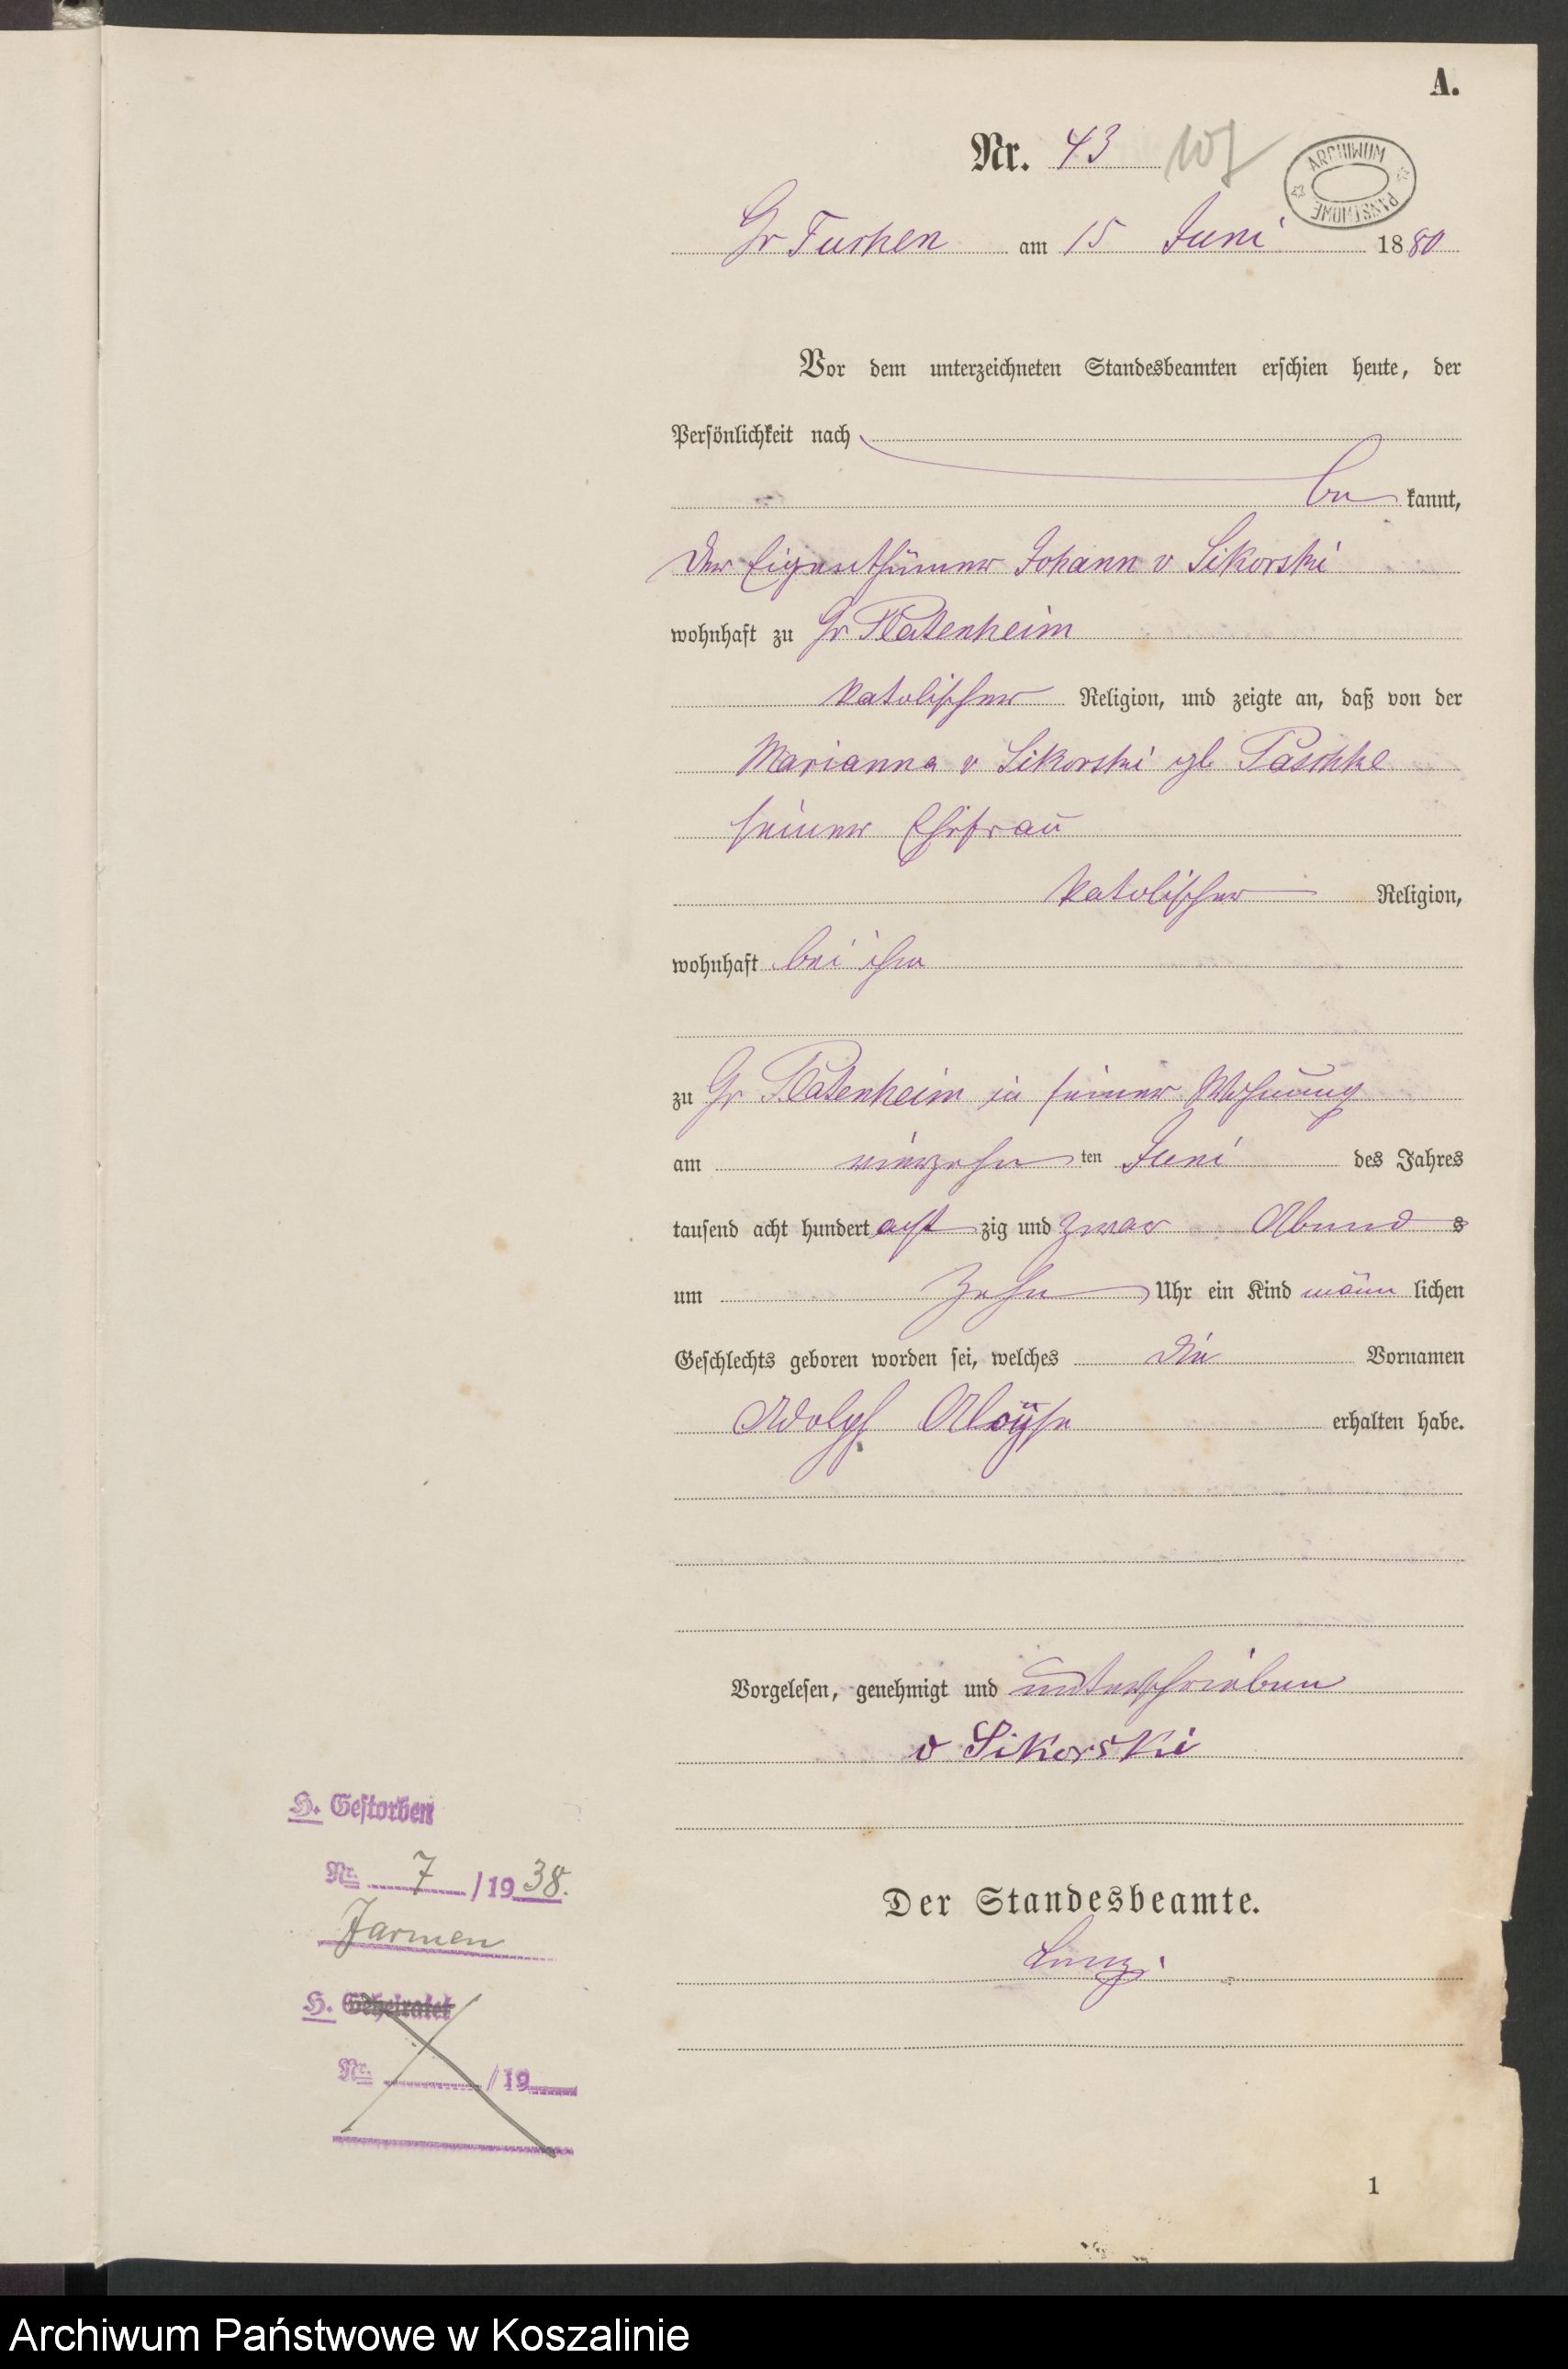 A.
Nr. 43 107
ARCHIWUM PAŃSTWOWE
Gr Tuchen am 15 Juni 1880
Vor dem unterzeichneten Standesbeamten erschien heute, der
Persönlichkeit nach
be kannt,
der Eigenthümer Johann v Sikorski
wohnhaft zu Gr Platenheim
katolischer Religion, und zeigte an, daß von der
Marianna v Sikorski geb Paschke
seiner Ehefrau
katolischer Religion,
wohnhaft bei ihm
zu Gr Platenheim in seiner Wohnung
am vierzehn ten Juni des Jahres
tausend acht hundert acht zig und zwar Abend s
um zehn Uhr ein Kind männ lichen
Geschlechts geboren worden sei, welches die Vornamen
Adolph Aloyse erhalten habe.
Vorgelesen, genehmigt und unterschrieben
v Sikorski
H. Gestorben
Nr. 7 /1938.
Jarmen
Der Standesbeamte.
H. Geheiratet
Nr. /19
1
Archiwum Państwowe w Koszalinie